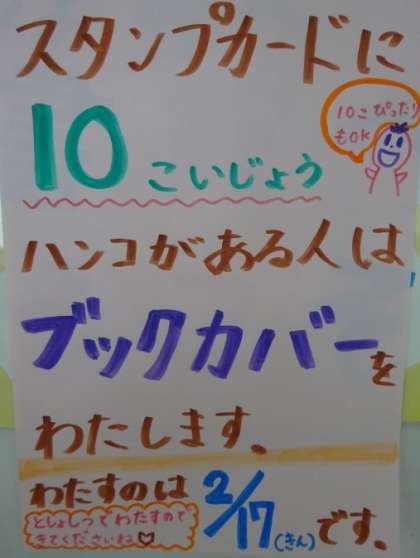 スタンプカードに
10こいじょう
10こぴったり
もOK
ハンコがある人は
ブックカバーを
わたします。
わたすのは2/17(きん)です。
としょしつでわたすので
きてくださいね♡